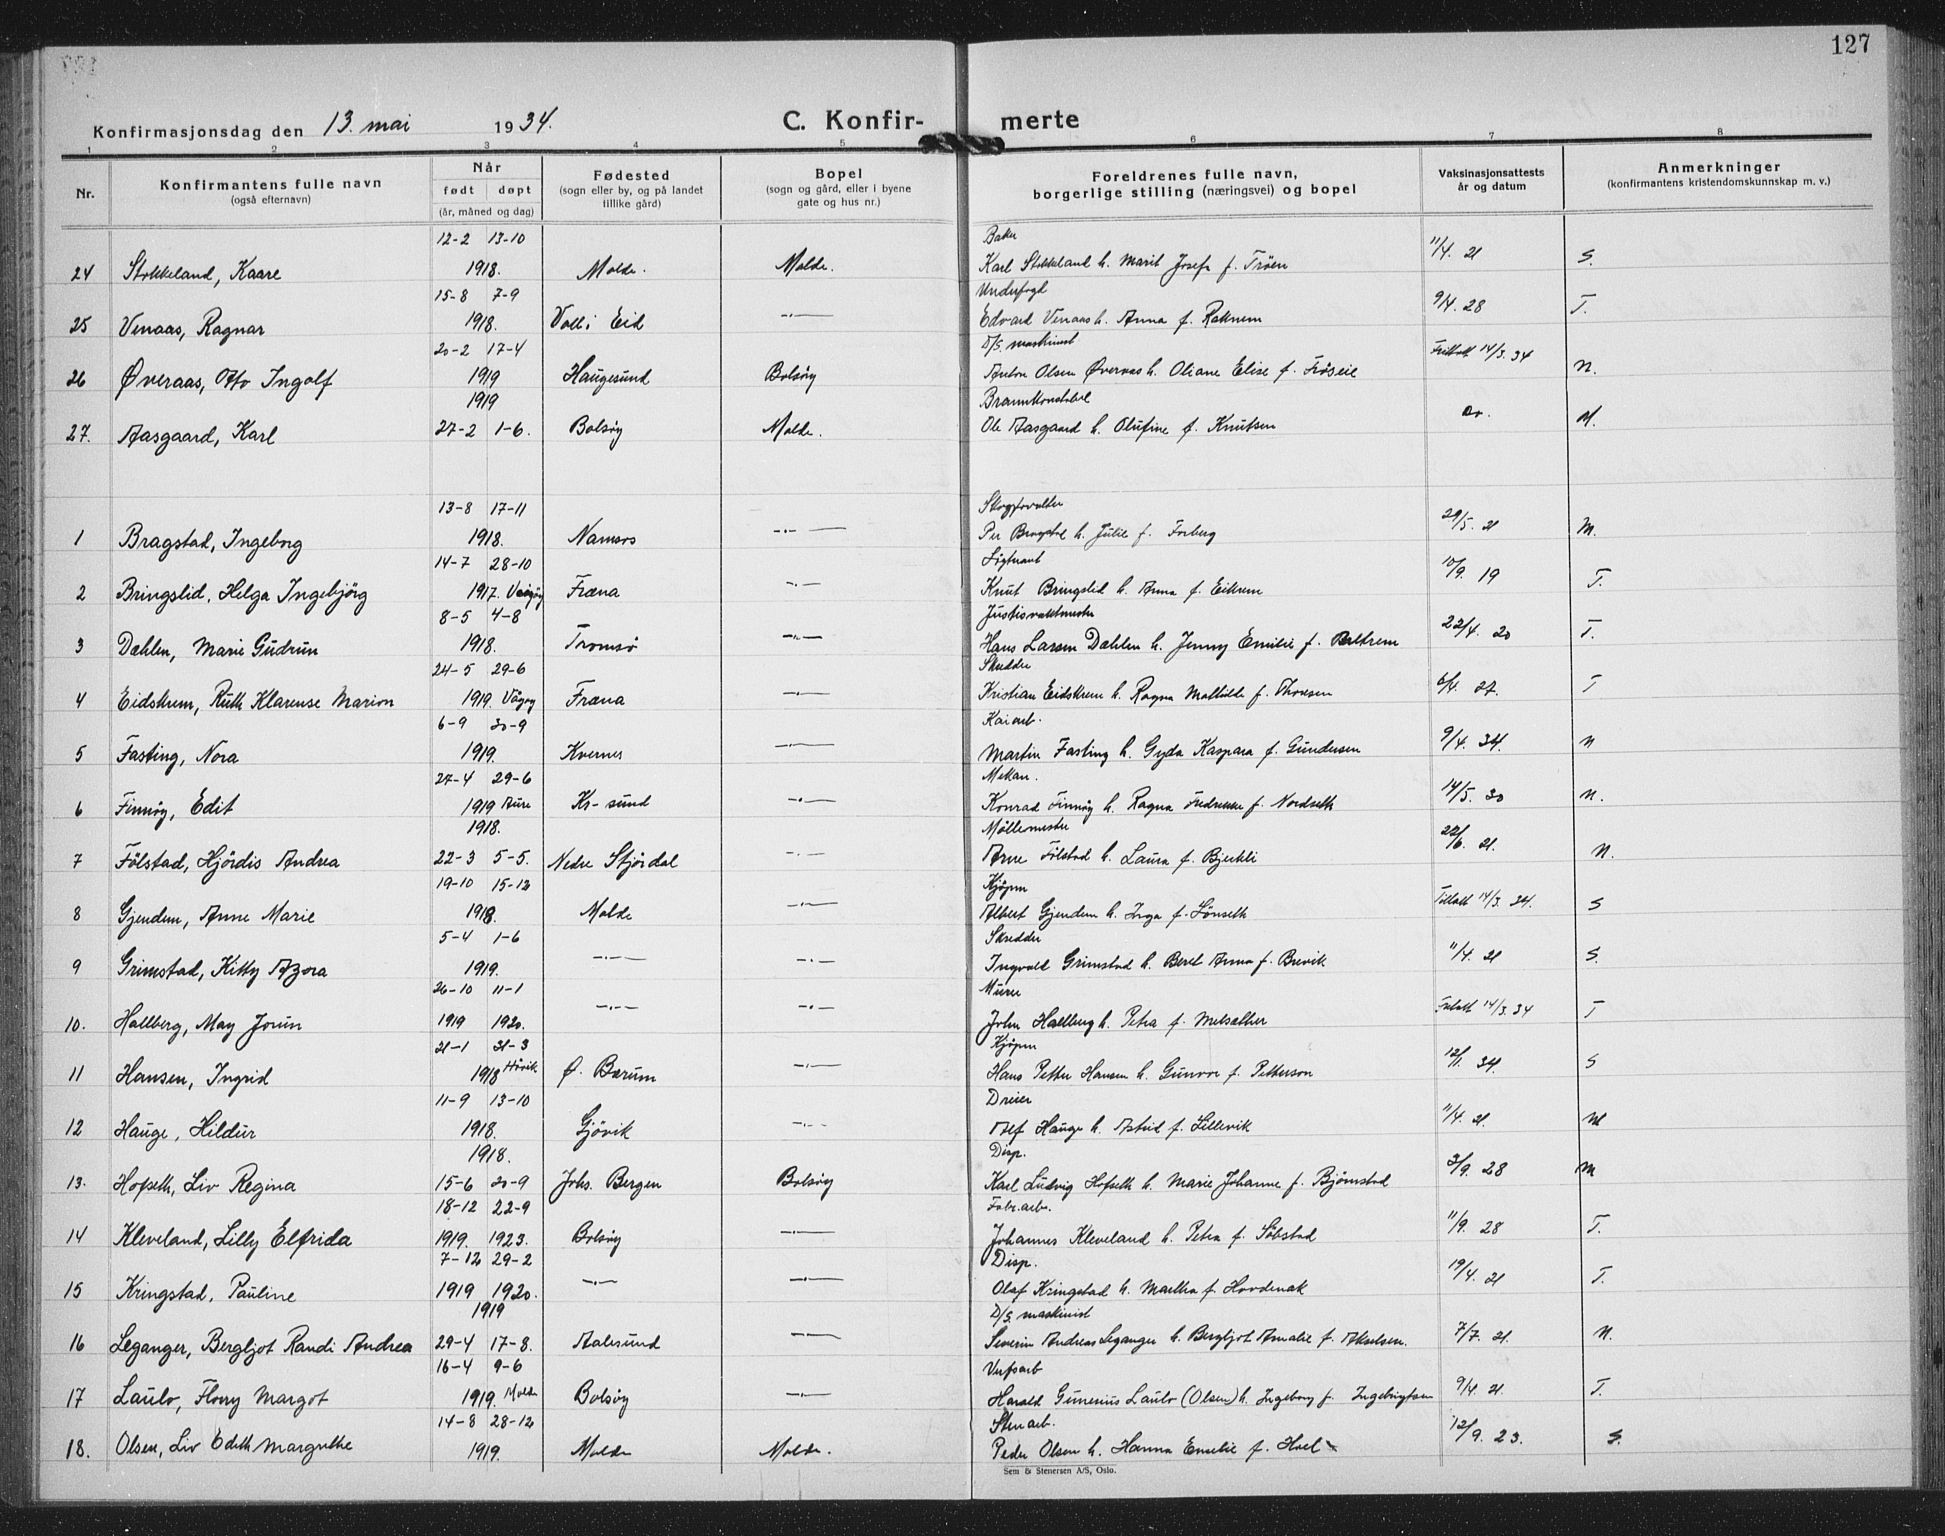 127
Konfirmasjonsdag den 13. mai 1934.
C. Konfir- merte
1 2 3 4 5 6 7 8
Nr. Konfirmantens fulle navn (også efternavn) Når født døpt (år, måned og dag) Fødested (sogn eller by, og på landet tillike gård) Bopel (sogn og gård, eller i byene gate og hus nr.) Foreldrenes fulle navn, borgerlige stilling (næringsvei) og bopel Vaksinasjonsattests år og datum Anmerkninger (konfirmantens kristendomskunnskap m. v.)
12-2 13-10 Baker
24 Stokkeland, Kaare 1918. Molde. Molde. Karl Stokkeland h. Marit Josefa f. Trøen 11/4. 21 S.
15-8 7-9 Underfogd
25 Venaas, Ragnar 1918. Voll i Eid —·— Edvard Venaas h. Anna f. Raknem 9/4. 28 T.
20-2 17-4 D/S. maskinist
26 Øveraas, Otto Ingolf 1919 Haugesund Bolsøy Anton Olsen Øveraas h. Oliane Elise f. Frøseie 14/3. 34 N.
1919 Brannkonstabel
27. Aasgaard, Karl 27-2 1-6. Bolsøy Molde. Ole Aasgaard h. Olufine f. Knutsen do. M.
13-8 17-11 Skogforvalter
1 Bragstad, Ingeborg 1918. Namsos —·— Per Bragstad h. Julie f. Forberg 29/5. 21 M.
14-7 28-10 Løgtnant
2 Bringslid, Helga Ingebjørg 1917. Vågøy Fræna —·— Knut Bringslid h. Anna f. Eikrem 10/9. 19 T.
8-5 4-8 Justisvaktmester
3 Dæhlen, Marie Gudrun 1918. Tromsø —·— Hans Larsen Dæhlen h. Jenny Emilie f. 22/4. 20 T.
24-5 29-6 Skredder
4 Eidskrem, Ruth Klarense Marion 1919. Vågøy Fræna —·— Kristian Eidskrem h. Ragna Mathilde f. Thoresen 6/4. 27. T
6-9 20-9 Kaiarb.
5 Fasting, Nora 1919. Kvernes —·— Martin Fasting h. Gyda Kaspara f. Gundersen 9/4. 34. N
27-4 29-6 Mekan.
6 Finnøy, Edit 1919 Aure Kr-sund —·— Konrad Finnøy h. Ragna Fredrikke f. Nordseth 14/5. 30 N.
1918. Møllemester
7 Følstad, Hjørdis Andrea 22-3 5-5. Nedre Stjørdal —·— Arne Følstad h. Laura f. Bjerkli 22/6. 21. N.
19-10 15-12 Kjøpm
8 Gjendem, Anne Marie 1918. Molde —·— Albert Gjendem h. Inga f. Lønseth 14/3. 34. S
5-4 1-6 Skredder
9 Grimstad, Kitty Azora 1919. —·— —·— Ingvald Grimstad h. Beret Anna f. Brevik 11/4. 21 S.
26-10 11-1 Murer
10. Hallberg, May Jorun 1919 1920. —·— —·— John Hallberg h. Petra f. Melsæther 14/3. 34 T
21-1 31-3 Kjøpm
11 Hansen, Ingrid 1918 Høvik Ø. Bærum —·— Hans Petter Hansen h. Gunvor f. Petterson 12/1. 34. S
11-9 13-10 Dreier
12 Hauge, Hildur 1918. Gjøvik —·— Alf Hauge h. Astrid f. Lillevik 11/4. 21. M
1918. Disp.
13. Hofseth, Liv Regina 15-6 20-9 Johs. Bergen Bolsøy Karl Ludvig Hofseth h. Marie Johanne f. Bjørnstad 3/9. 28 M
18-12 22-9 Fabr.arb.
14 Kleveland, Lilly Elfrida 1919. 1923. Bolsøy —·— Johannes Kleveland h. Petra f. Søbstad 11/9. 28 T.
7-12 29-2 Disp.
15 Kringstad, Pauline 1919 1920. —·— —·— Olaf Kringstad h. Martha f. Hovdenak 19/4. 21 T.
1919 D/S. maskinist
16 Leganger, Bergljot Randi Andrea 29-4 17-8. Aalesund —·— Severin Andreas Leganger h. Bergljot Amalie f. Akselsen. 7/7. 21. N.
16-4 9-6 Verfsarb
17 Laulo, Florry Margot 1919. Molde Bolsøy —·— Harald Gunerius Laulo (Olsen) h. Ingeborg f. Ingebrigtsen 9/4. 21. T.
14-8 28-12 Stenarb.
18. Olsen, Liv Edith Margrethe 1919. Molde Molde. Peder Olsen h. Hanna Emelie f. Hoel 12/9. 23. S.
Sem & Stenersen A/S, Oslo.